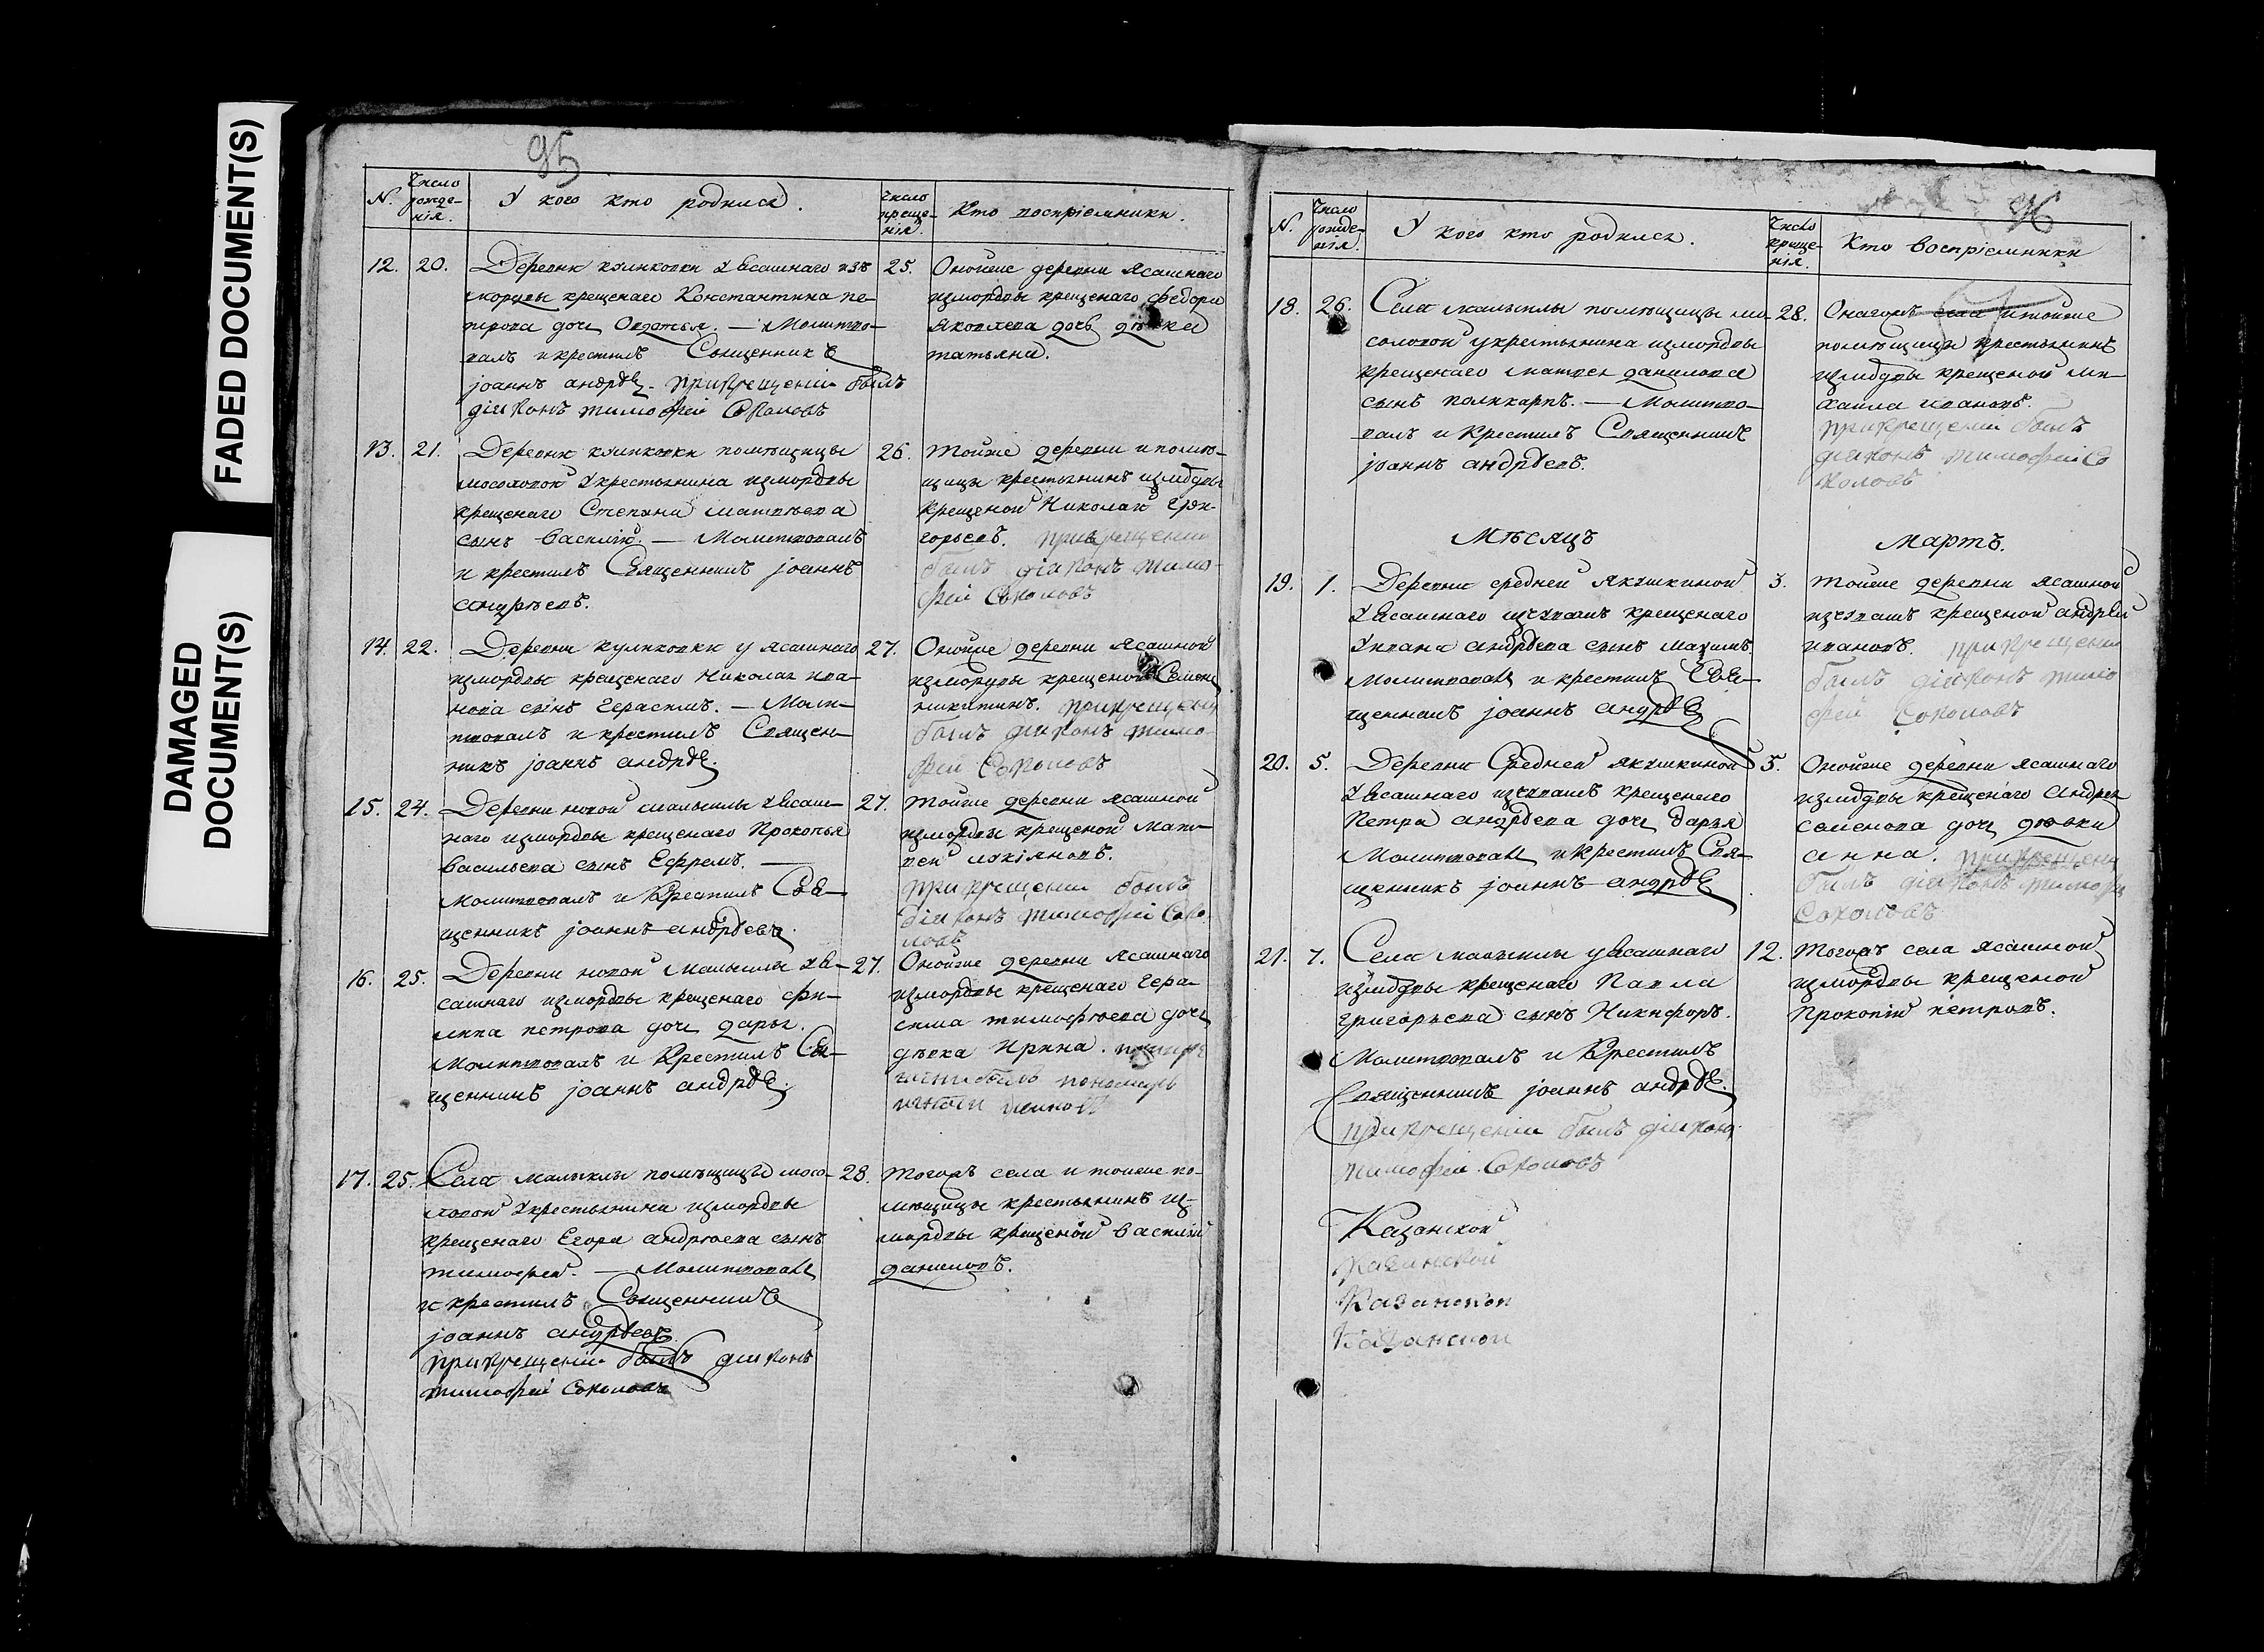 FADED DOCUMENT(S)
DAMAGED
DOCUMENT(S)
95
N.
Число
рожде-
нія.
У кого кто родился.
Число
креще-
нія.
Кто воспріемники.
12. 20.
Деревни куликовки у Ясашнаго изъ
мордвы крещенаго Константина пе-
трова дочь Овдотья. — Молитво-
валъ и крестилъ Священникъ
јоаннъ андрѣе. при крещеніи былъ
діаконъ тимофей Соколовъ
25.
Оной же деревни Ясашнаго
измордвы крещенаго Федора
Яковлева дочь дѣвка
татьяна.
13. 21.
Деревни куликовки помѣщицы
мосоловой У крестьянина измордвы
крещенаго Степана матвѣева
сынъ василій. — Молитвовалъ
и крестилъ Священникъ јоаннъ
андрѣевъ.
26.
Той же деревни и помѣ-
щицы крестьянинъ измордвы
крещеной Николай Гри-
горьевъ. при крещеніи
былъ діаконъ тимо-
фей Соколовъ
14. 22.
Деревни куликовки у ясашнаго
измордвы крещенаго Николая ива-
нова сынъ Герасимъ. — Моли-
твовалъ и крестилъ Священ-
никъ јоаннъ андрѣе.
27.
Оной же деревни Ясашной
измордвы крещеной Семенъ
никитинъ. при крещеніи
былъ діаконъ тимо-
фей Соколовъ
15. 24.
Деревни новой малыклы у Ясаш-
наго измордвы крещенаго Прокопья
васильева сынъ Ефремъ. —
Молитвовалъ и Крестилъ Свя-
щенникъ јоаннъ андрѣевъ.
27.
Той же деревни Ясашной
измордвы крещеной Мат-
вей лукіановъ.
при крещеніи былъ
діаконъ тимофей Соко-
ловъ
16. 25.
Деревни новой малыклы у Я-
сашнаго измордвы крещенаго фи-
липа петрова дочь дарья.
Молитвовалъ и Крестилъ Свя-
щенникъ јоаннъ андрѣе.
27.
Оной же деревни Ясашнаго
измордвы крещенаго Гера-
сима тимофѣева дочь
дѣвка Ирина.
былъ пономарь
17. 25.
Села малыклы помѣщицы мосо-
ловой У крестьянина измордвы
крещенаго Егора андрѣева сынъ
тимофей. — Молитвовалъ
и крестилъ Священникъ
јоаннъ андрѣевъ.
при крещеніи былъ діаконъ
тимофей Соколовъ
28.
Того жъ села и той же по-
мѣщицы крестьянинъ из-
мордвы крещеной василій
даниловъ.
96
N.
Число
рожде-
нія.
У кого кто родился.
Число
креще-
нія.
Кто воспріемники
18. 26.
Села малыклы помѣщицы мо-
соловой у крестьянина измордвы
крещенаго матвея данилова
сынъ поликарпъ. — Молитво-
валъ и Крестилъ Священникъ
јоаннъ андрѣевъ.
28.
Онагожъ села и той же
помѣщицы крестьянинъ
измордвы крещеной ми-
хаила ивановъ.
при крещеніи былъ
діаконъ тимофей Со
коловъ
Мѣсяцъ
Мартъ.
19. 1.
Деревни средней Якушкиной
У Ясашнаго изчувашъ крещенаго
Ивана андрѣева сынъ Максимъ.
Молитвовалъ и крестилъ Свя-
щенникъ јоаннъ андрѣе
3.
Той же деревни Ясашной
изчувашъ крещеной андрей
ивановъ. при крещеніи
былъ діаконъ тимо
фей Соколовъ
20. 5.
Деревни Средней якушкиной
У Ясашнаго изчувашъ крещенаго
Петра андрѣева дочь дарья
Молитвовалъ и крестилъ Свя-
щенникъ јоаннъ андрѣе
5.
Оной же деревни ясашнаго
измордвы крещенаго Андрея
семенова дочь дѣвка
анна. при крещеніи
былъ діаконъ тимофей
Соколовъ
21. 7.
Села малыклы у Ясашнаго
измордвы крещенаго Павла
Григорьева сынъ Никифоръ.
Молитвовалъ и Крестилъ
Священникъ јоаннъ андрѣе.
при крещеніи былъ діаконъ
тимофей Соколовъ
12.
Того жъ села ясашной
измордвы крещеной
Прокопій петровъ.
Казанской
Казанской
Казанской
Казанской